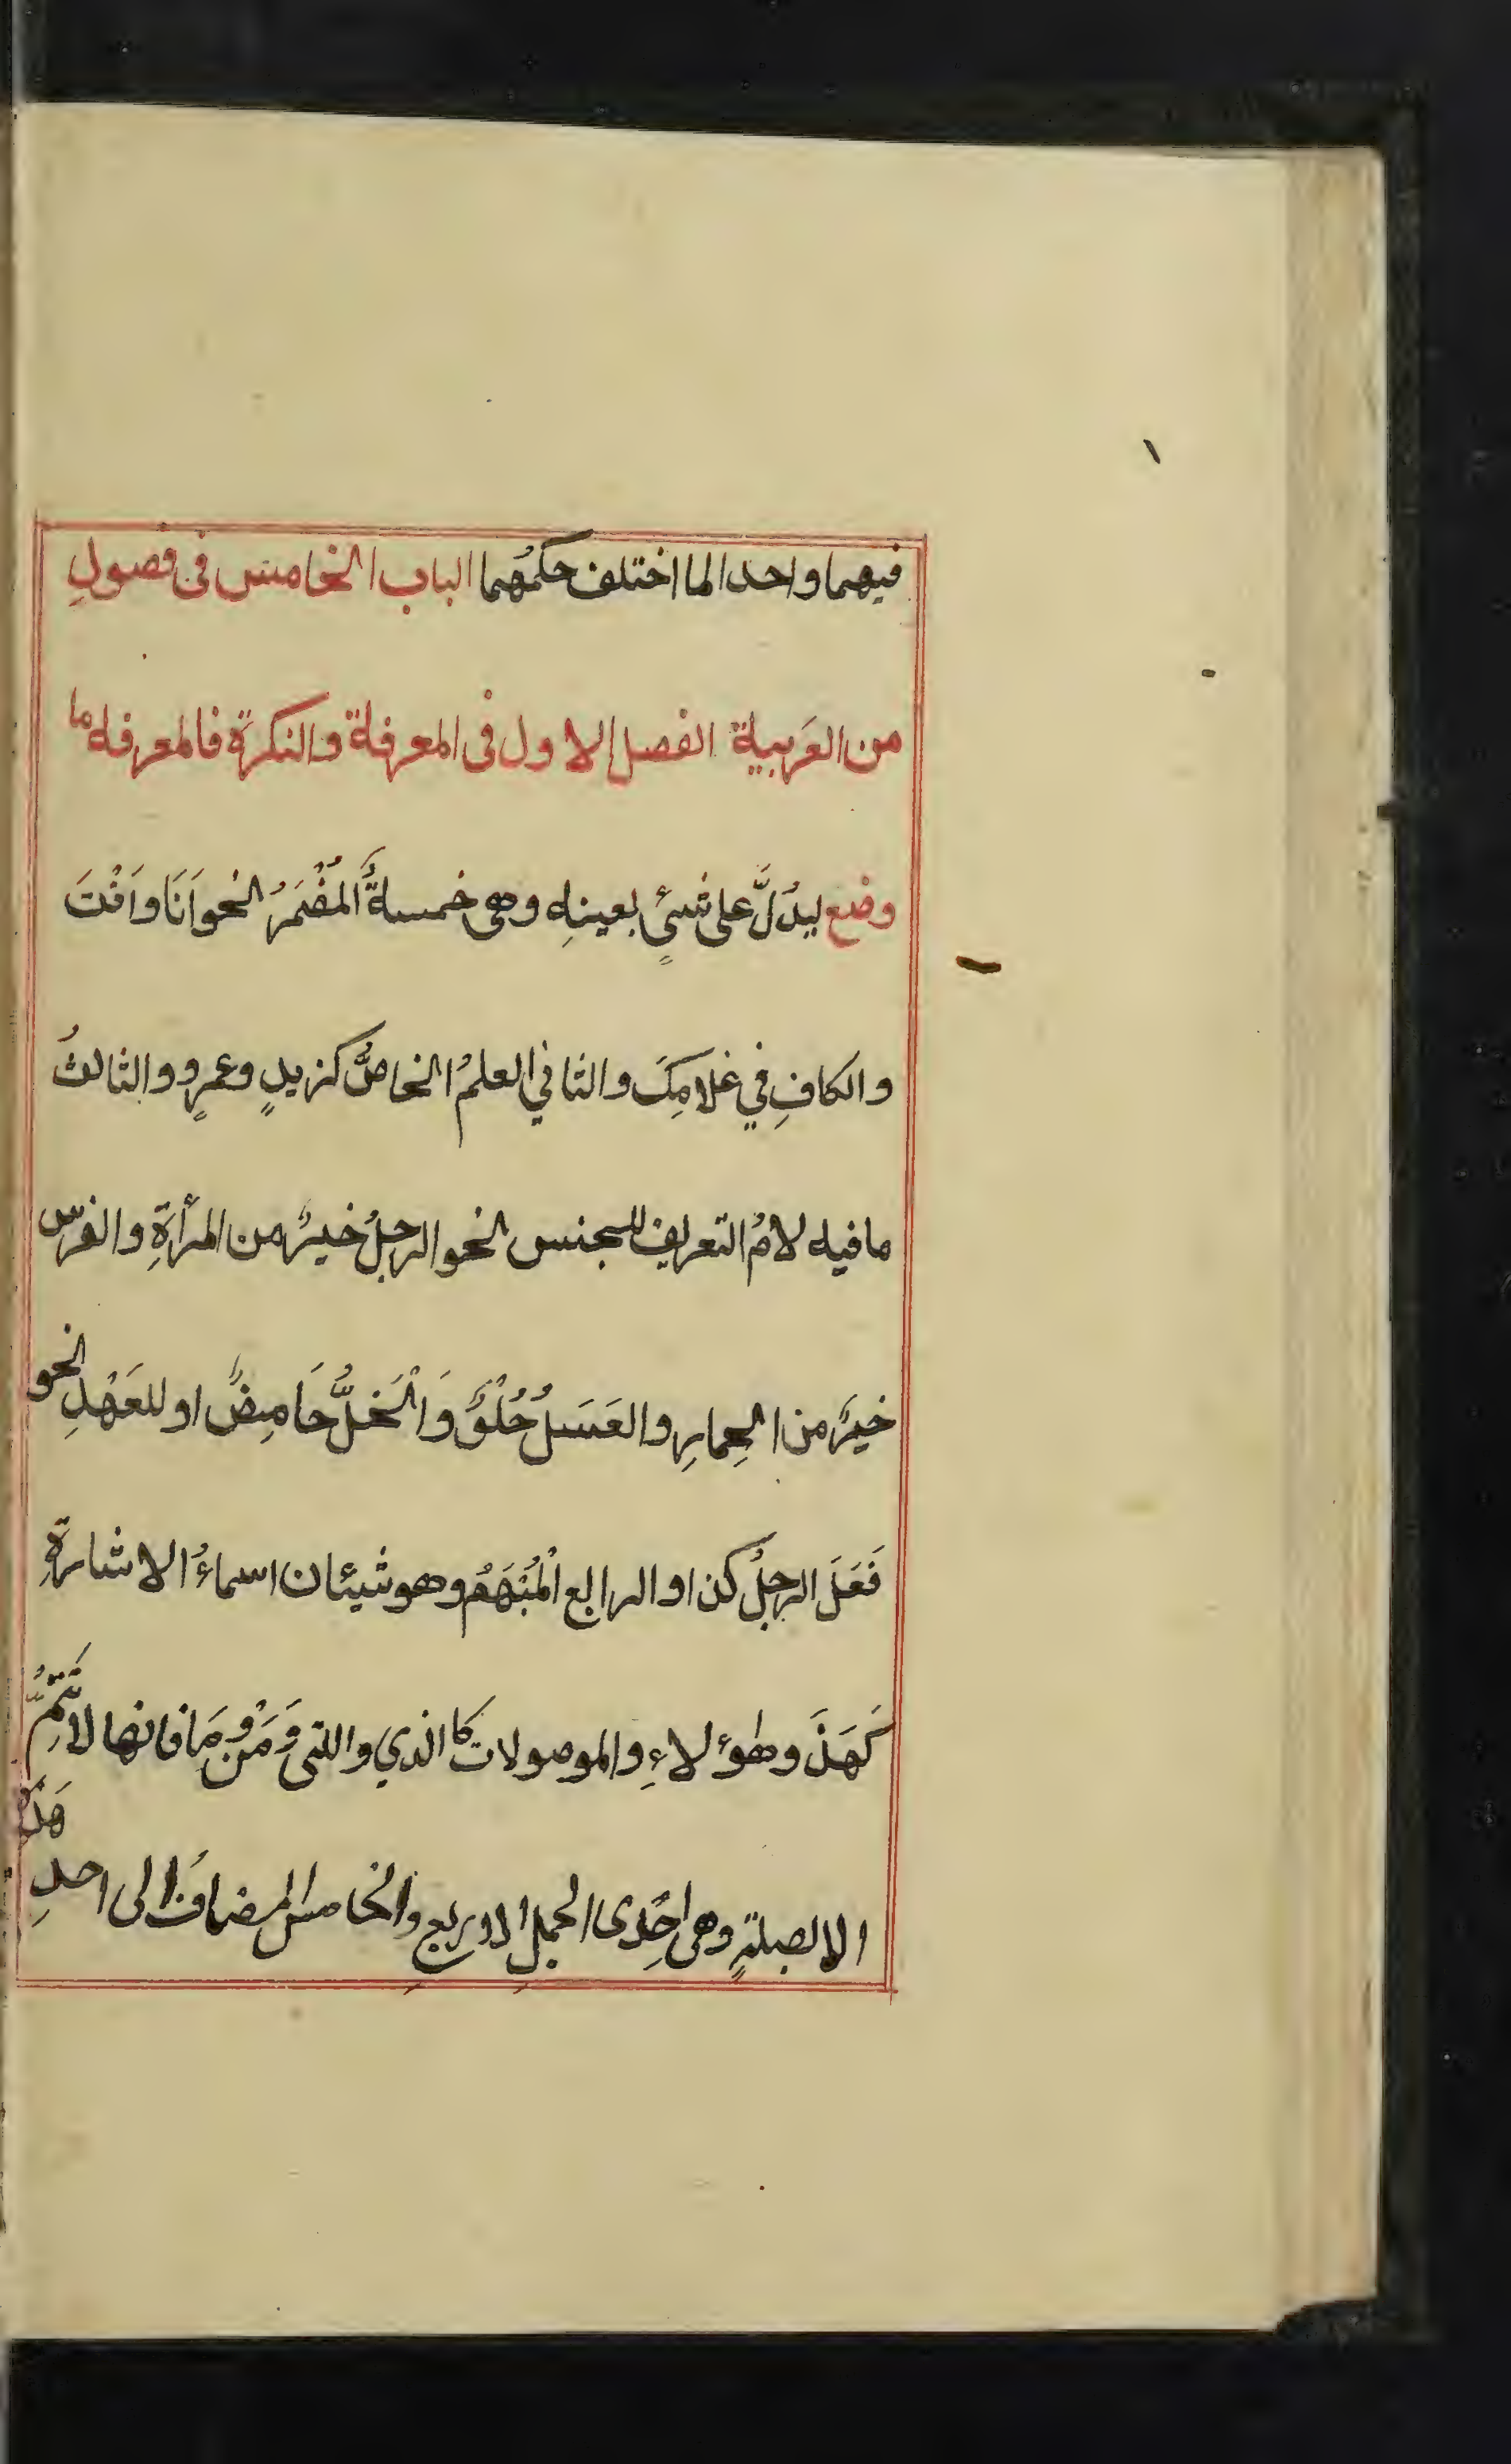 ١
فيهما واحدا لما اختلف حكمُهما الباب الخامس فى فصولِ
من العَربية الفصل الاول فى المعرفة والنكرة فالمعرفه ما
وضع ليدُلَّ على شيئٍ بعينهِ وهى خمسةٌ اَلمُضْمَرُ نحو اَنَا واَنْتَ
والكافِ في غلامِكَ والثاني العلمُ الخاصُّ كزيدٍ وعمرٍو والثالثُ
مافيه لامُ التعريف للجنس نحو الرجلُ خيرٌ من المرأةِ والفرس
خيرٌ من الحِمارِ والعَسَلُ حُلْوٌ وَالْخَلُّ حَامِضٌ او للعَهْدِ نحو
فَعَلَ الرجلُ كذا والرابع الْمُبْهَمُ وهو شيئان اسماءُ الاشارةِ
كَهَذَ وهؤلاءِ والموصولات كا الذي واللتى وَمَنْ وَمَا فانها لا تَتِمُّ
الا بصلةٍ وهى اِحْدى الجمل الاربع والخامس المضافُ الى احدِ
هَذه